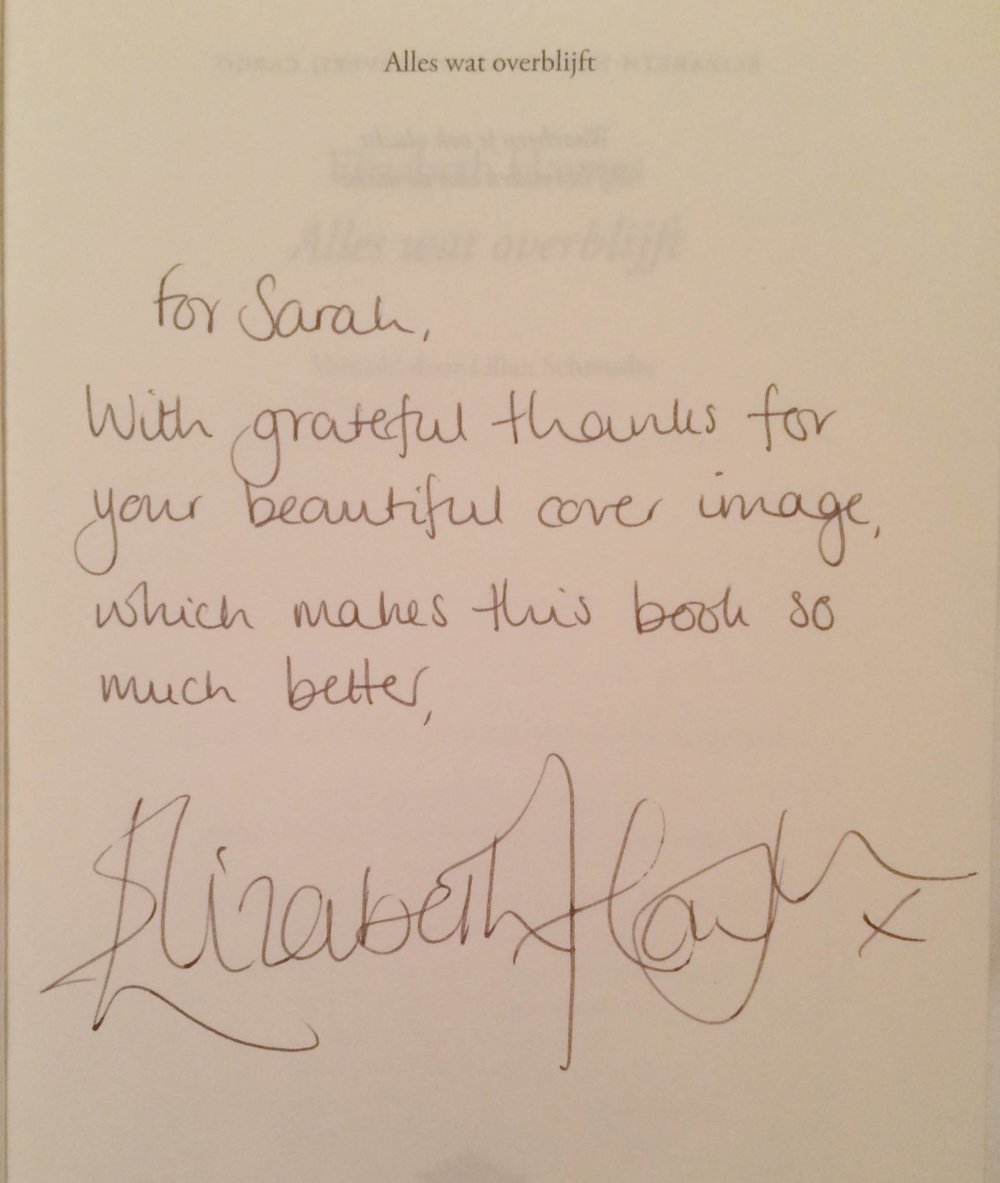 Alles wat overblijft
Alles wat overblijft
for Sarah,
With grateful thanks for
your beautiful cover image,
which makes this book so
much better,
Elizabeth Haynes x